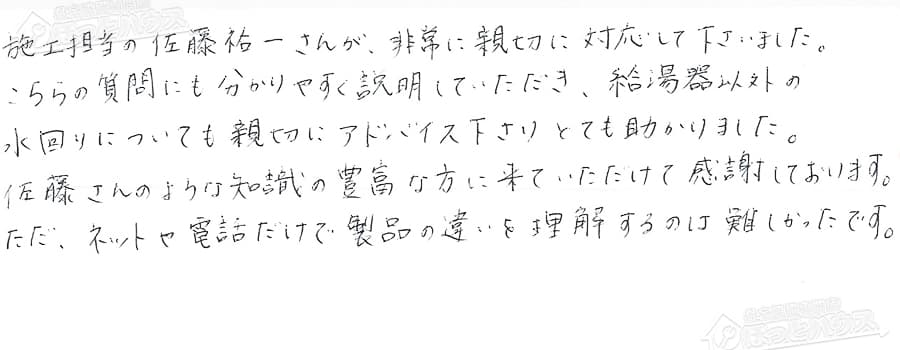 施工担当の佐藤祐一さんが、非常に親切に対応して下さいました。
こちらの質問にも分かりやすく説明していただき、給湯器以外の
水回りについても親切にアドバイス下さりとても助かりました。
佐藤さんのような知識の豊富な方に来ていただけて感謝しております。
ただ、ネットや電話だけで製品の違いを理解するのは難しかったです。